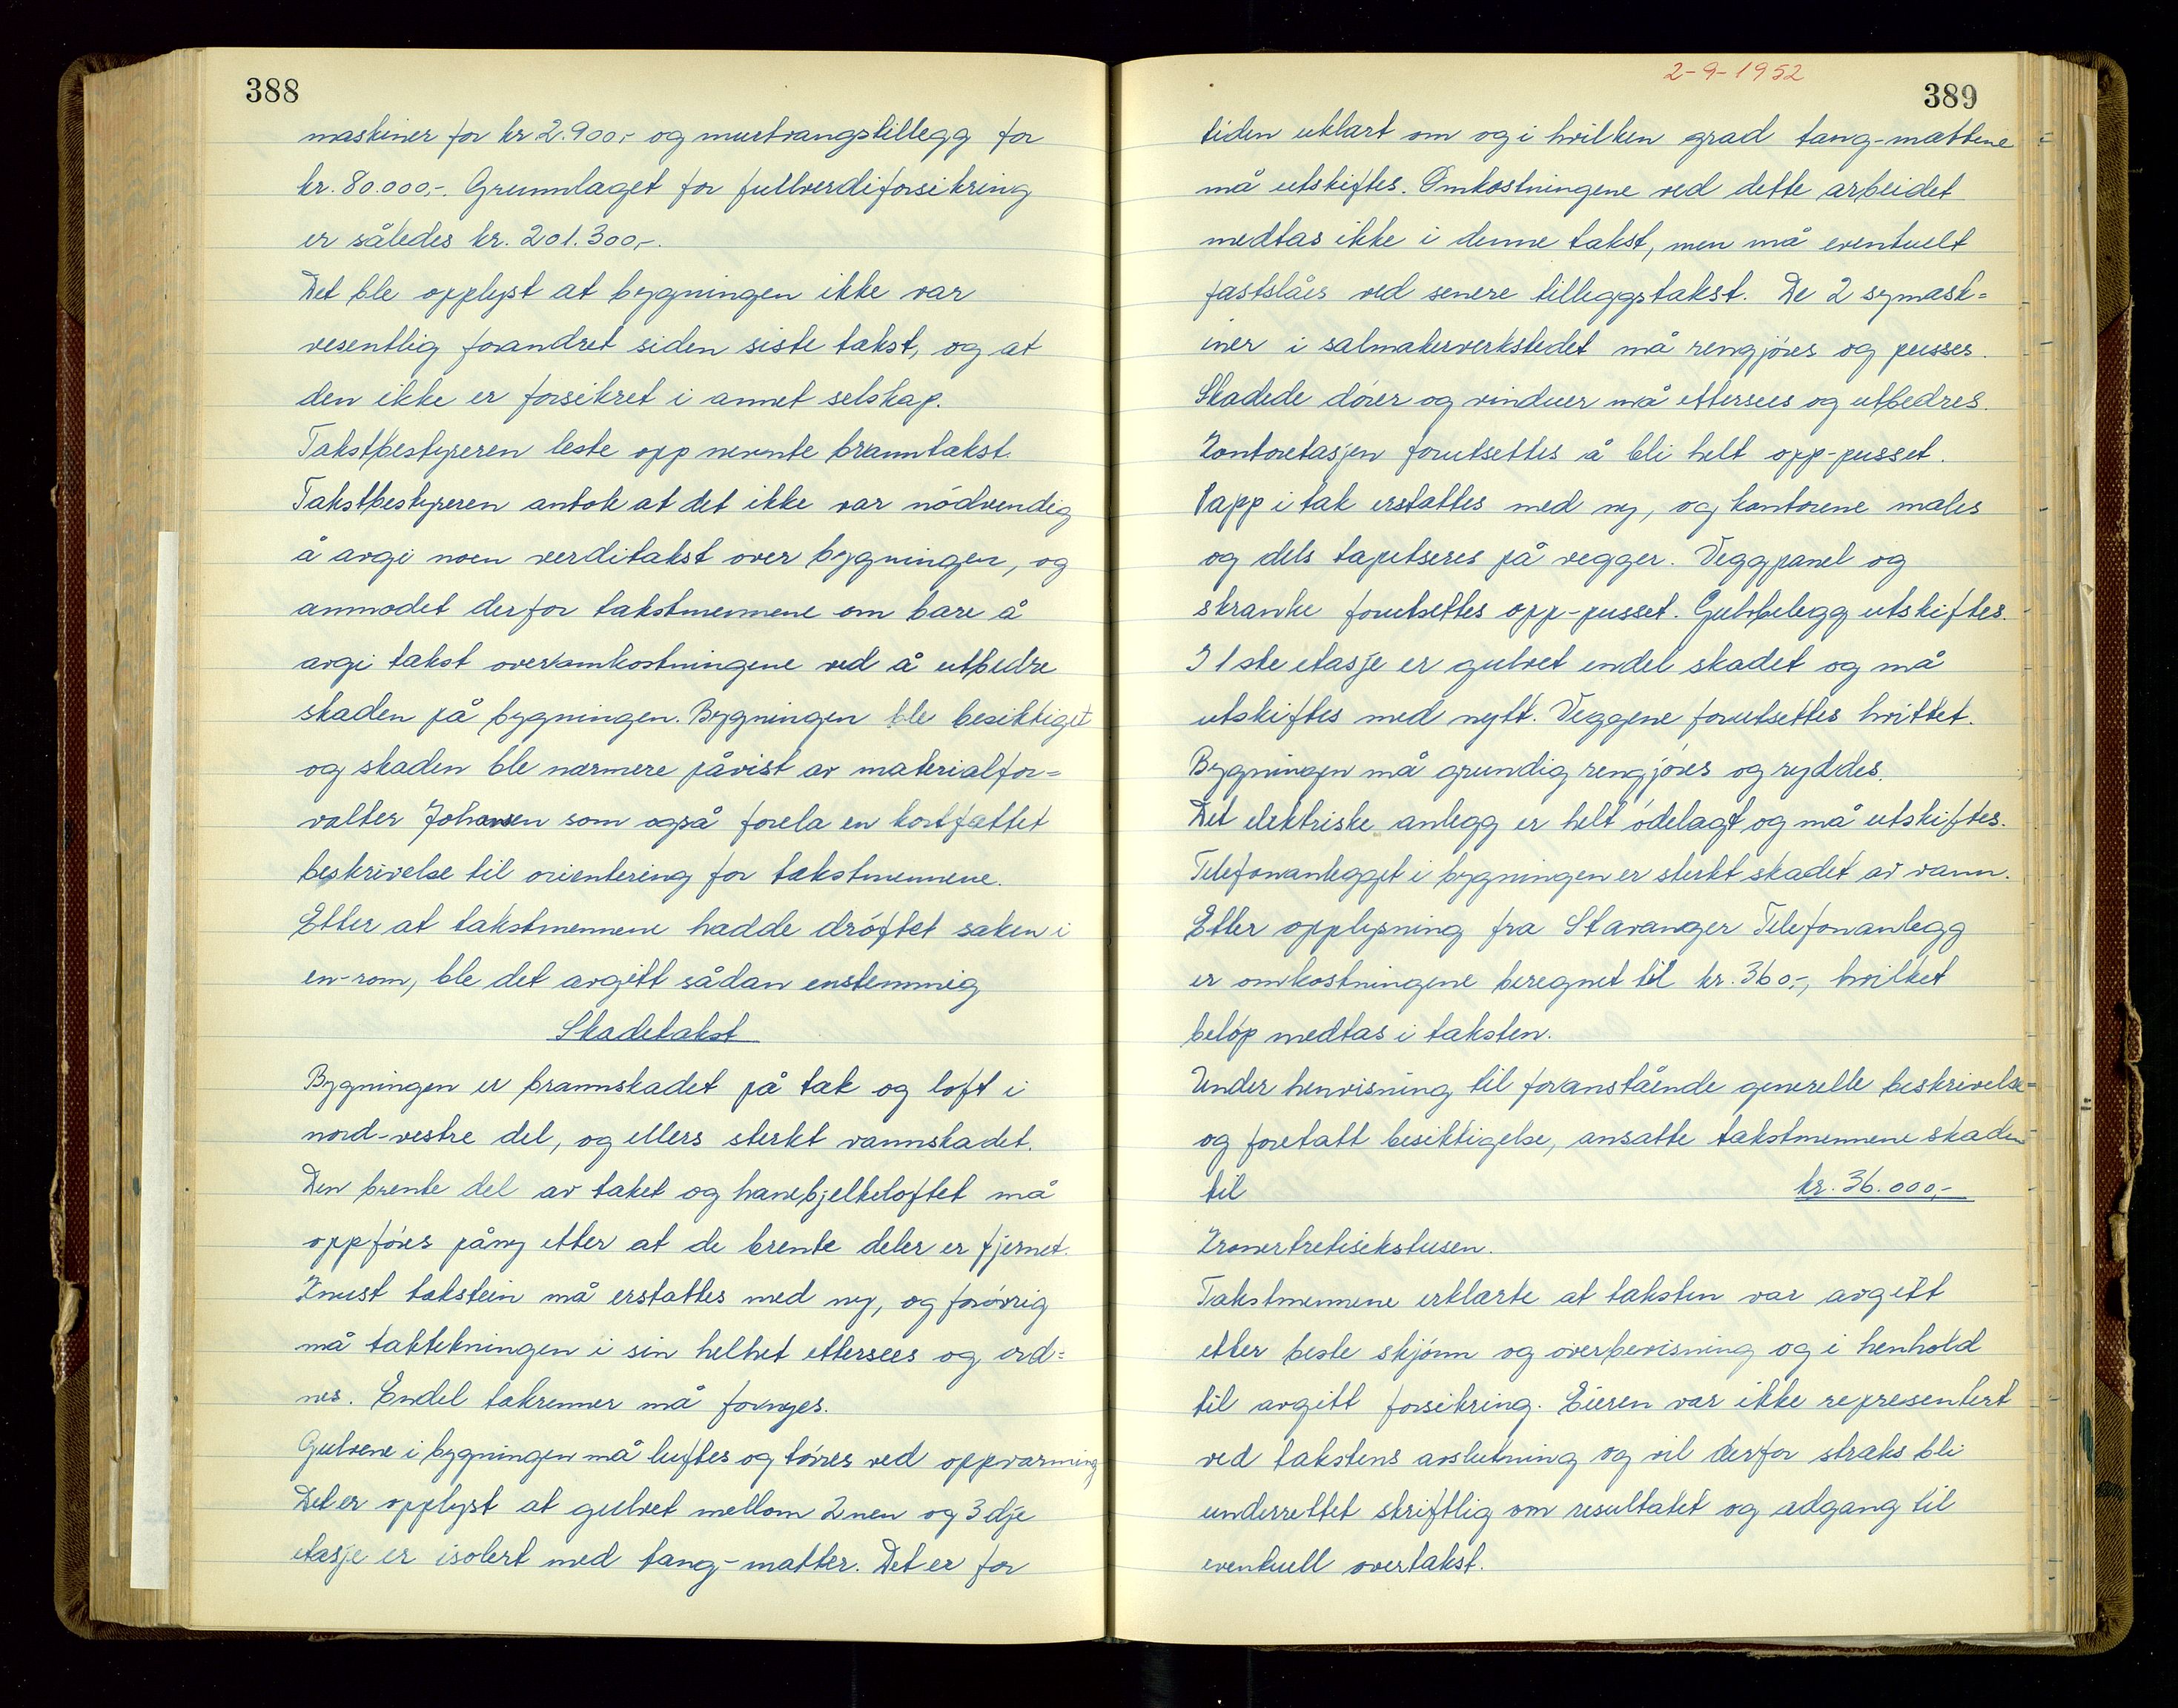 388
maskiner for kr 2.900,- og murtvangstillegg for
kr. 80.000,-. Grunnlaget for fullverdiforsikring
er således kr. 201.300,-.
Det ble opplyst at bygningen ikke var
vesentlig forandret siden siste takst, og at
den ikke er forsikret i annet selskap.
Takstbestyreren leste opp nevnte branntakst.
Takstbestyreren antok at det ikke var nödvendig
å avgi noen verditakst over bygningen, og
anmodet derfor takstmennene om bare å
avgi takst over omkostningene ved å utbedre
skaden på bygningen. Bygningen ble besiktiget
og skaden ble nærmere påvist av materialfor=
valter Johansen som også forela en kortfattet
beskrivelse til orientering for takstmennene.
Etter at takstmennene hadde dröftet saken i
en-rom, ble det avgitt sådan enstemmig
Skadetakst
Bygningen er brannskadet på tak og loft i
nord-vestre del, og ellers sterkt vannskadet.
Den brente del av taket og hanebjelkeloftet må
oppföres påny etter at de brente deler er fjernet.
Knust takstein må erstattes med ny, og forövrig
må taktekningen i sin helhet ettersees og ord=
nes. Endel takrenner må fornyes.
Gulvene i bygningen må luftes og törres ved oppvarming
Det er opplyst at gulvet mellom 2nen og 3dje
etasje er isolert med tang-matter. Det er for
2-9-1952
389
tiden uklart om og i hvilken grad tang-mattene
må utskiftes. Omkostningene ved dette arbeidet
medtas ikke i denne takst, men må eventuelt
fastslåes ved senere tilleggstakst. De 2 symask=
iner i salmakerverkstedet må rengjöres og pusses.
Skadede dörer og vinduer må ettersees og utbedres.
Kontoretasjen forutsettes å bli helt opp-pusset.
Papp i tak erstattes med ny, og kontorene males
og dels tapetseres på vegger. Veggpanel og
skranke forutsettes opp-pusset. Gulvbelegg utskiftes.
I 1ste etasje er gulvet endel skadet og må
utskiftes med nytt. Veggene forutsettes hvittet.
Bygningen må grundig rengjöres og ryddes.
Det elektriske anlegg er helt ödelagt og må utskiftes.
Telefonanlegget i bygningen er sterkt skadet av vann.
Etter opplysning fra Stavanger Telefonanlegg
er omkostningene beregnet til kr. 360,-, hvilket
belöp medtas i taksten.
Under henvisning til foranstående generelle beskrivelse
og foretatt besiktigelse, ansatte takstmennene skaden
til kr. 36.000,-
Kronertretisekstusen.
Takstmennene erklærte at taksten var avgitt
etter beste skjönn og overbevisning og i henhold
til avgitt forsikring. Eieren var ikke representert
ved takstens avslutning og vil derfor straks bli
underrettet skriftlig om resultatet og adgang til
eventuell overtakst.